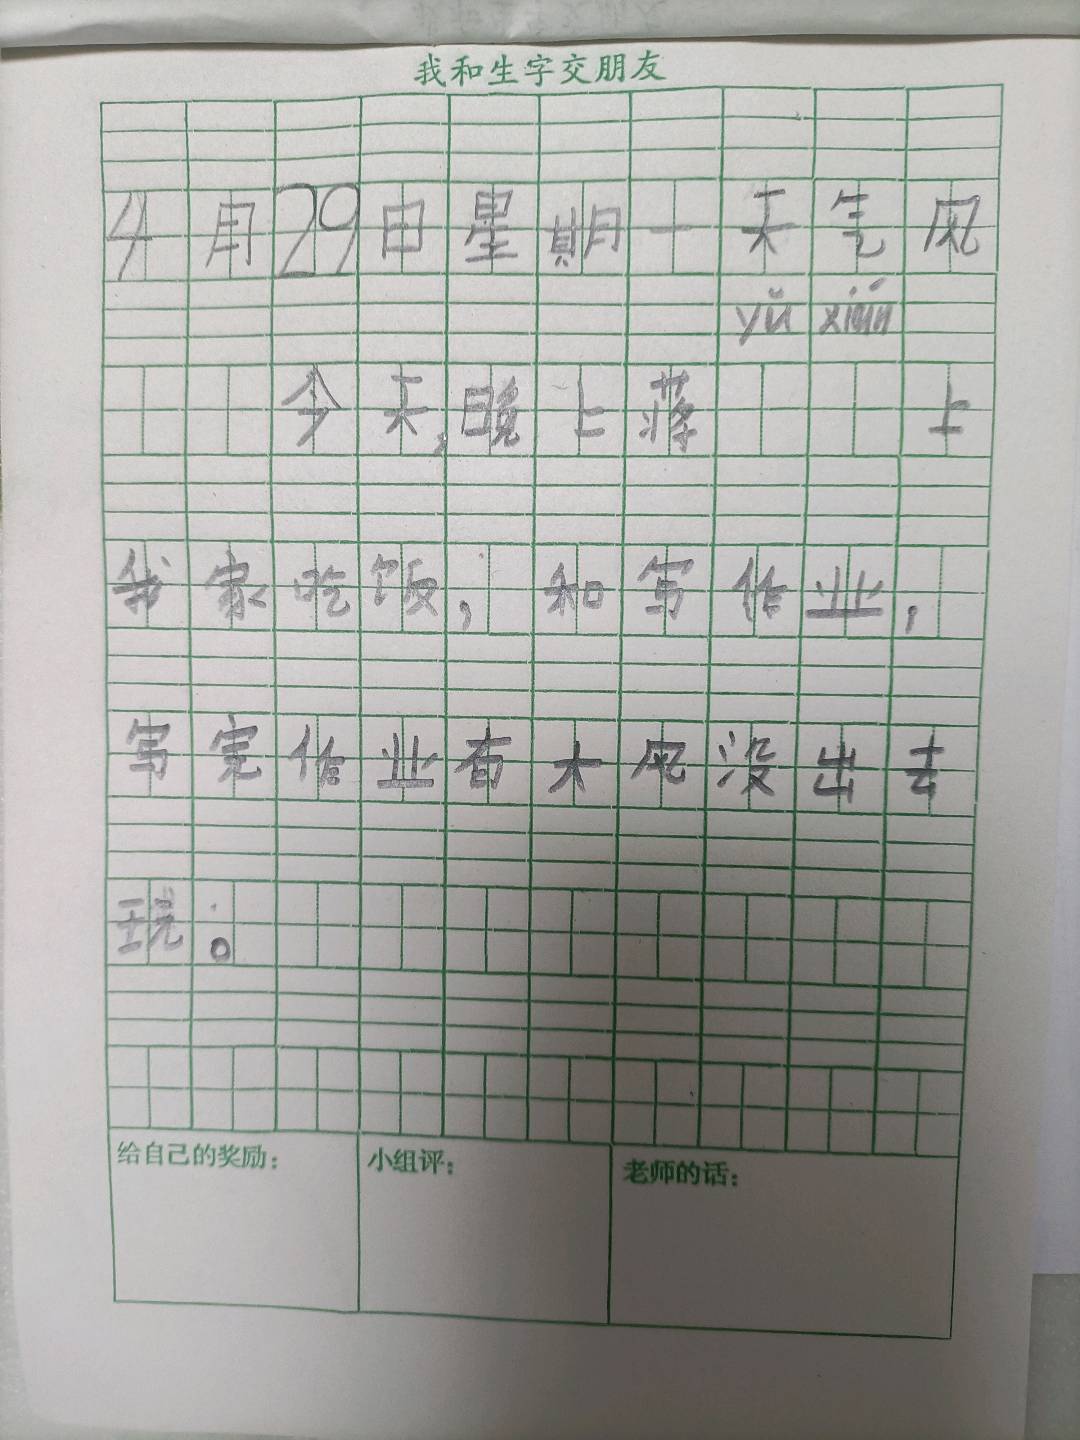 我和生字交朋友
4月29日星期一天气风
yǔ xián
今天,晚上蒋 上
我家吃饭,和写作业,
写完作业有大风没出去
玩。
给自己的奖励: 小组评: 老师的话: